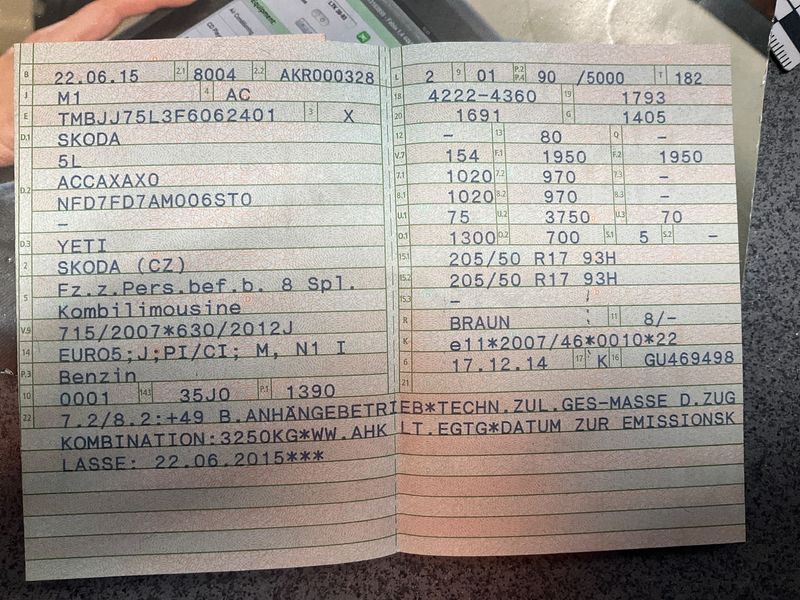 Equipment
Air Conditioning
B 22.06.15 2.1 8004 2.2 AKR000328
J M1 4 AC
E TMBJJ75L3F6062401 3 X
D.1 SKODA
5L
D.2 ACCAXAX0
NFD7FD7AM006ST0
–
D.3 YETI
2 SKODA (CZ)
5 Fz.z.Pers.bef.b. 8 Spl.
Kombilimousine
V.9 715/2007*630/2012J
14 EURO5;J;PI/CI; M, N1 I
P.3 Benzin
10 0001 14.1 35J0 P.1 1390
L 2 9 01 P.2 P.4 90 /5000 T 182
18 4222-4360 19 1793
20 1691 G 1405
12 – 13 80 Q –
V.7 154 F.1 1950 F.2 1950
7.1 1020 7.2 970 7.3 –
8.1 1020 8.2 970 8.3 –
U.1 75 U.2 3750 U.3 70
O.1 1300 O.2 700 S.1 5 S.2 –
15.1 205/50 R17 93H
15.2 205/50 R17 93H
15.3 –
R BRAUN 11 8/–
K e11*2007/46*0010*22
6 17.12.14 17 K 16 GU469498
21
22 7.2/8.2:+49 B.ANHÄNGEBETRIEB*TECHN.ZUL.GES-MASSE D.ZUG
KOMBINATION:3250KG*WW.AHK LT.EGTG*DATUM ZUR EMISSIONSK
LASSE: 22.06.2015***